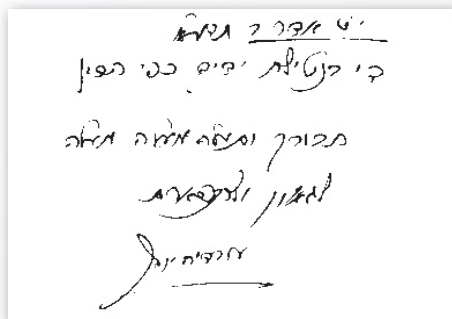 י"ט אדר ב תשע"א
די בנטילת ידים כפי הדין
תבורך ותעלה מעלה מעלה
לגאון ולתפארת
עובדיה יוסף